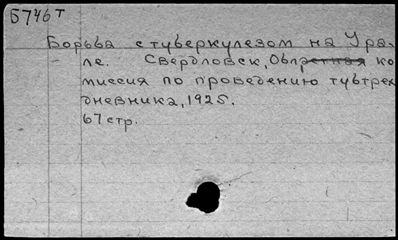 Б746т
Борьба с туберкулезом на Ура-
ле. Свердловск, Обл. ко
миссия по проведению тубтрех
дневника, 1925.
67 стр.